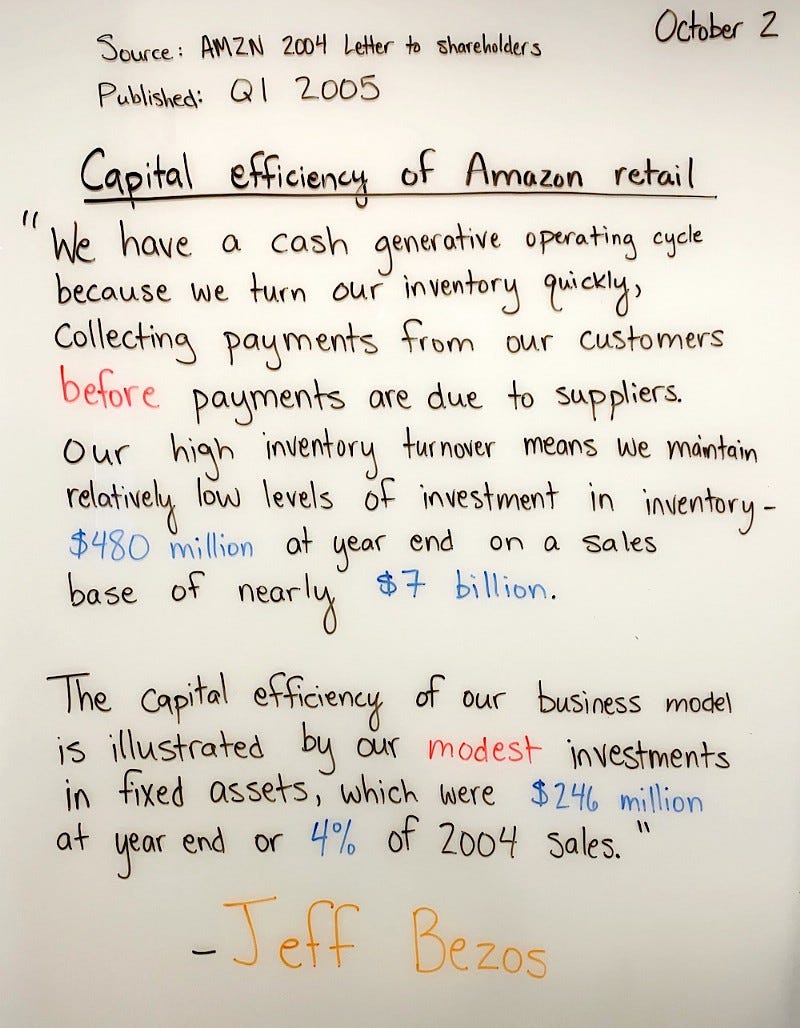 October 2
Source: AMZN 2004 Letter to shareholders
Published: Q1 2005
Capital efficiency of Amazon retail
"We have a cash generative operating cycle
because we turn our inventory quickly,
Collecting payments from our customers
before payments are due to suppliers.
Our high inventory turnover means we maintain
relatively low levels of investment in inventory-
$480 million at year end on a sales
base of nearly $7 billion.
The capital efficiency of our business model
is illustrated by our modest investments
in fixed assets, which were $246 million
at year end or 4% of 2004 sales."
- Jeff Bezos